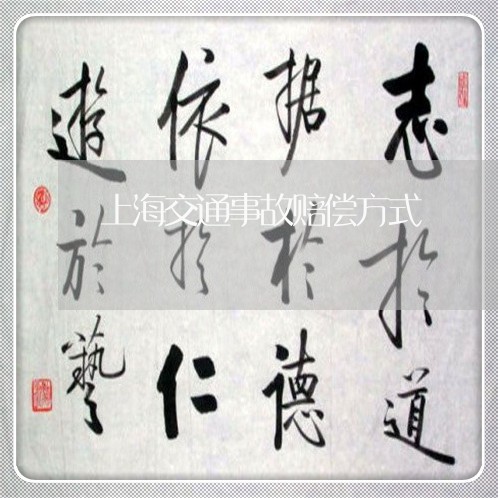 志於道
据於德
依於仁
遊於藝
上海交通事故赔偿方式